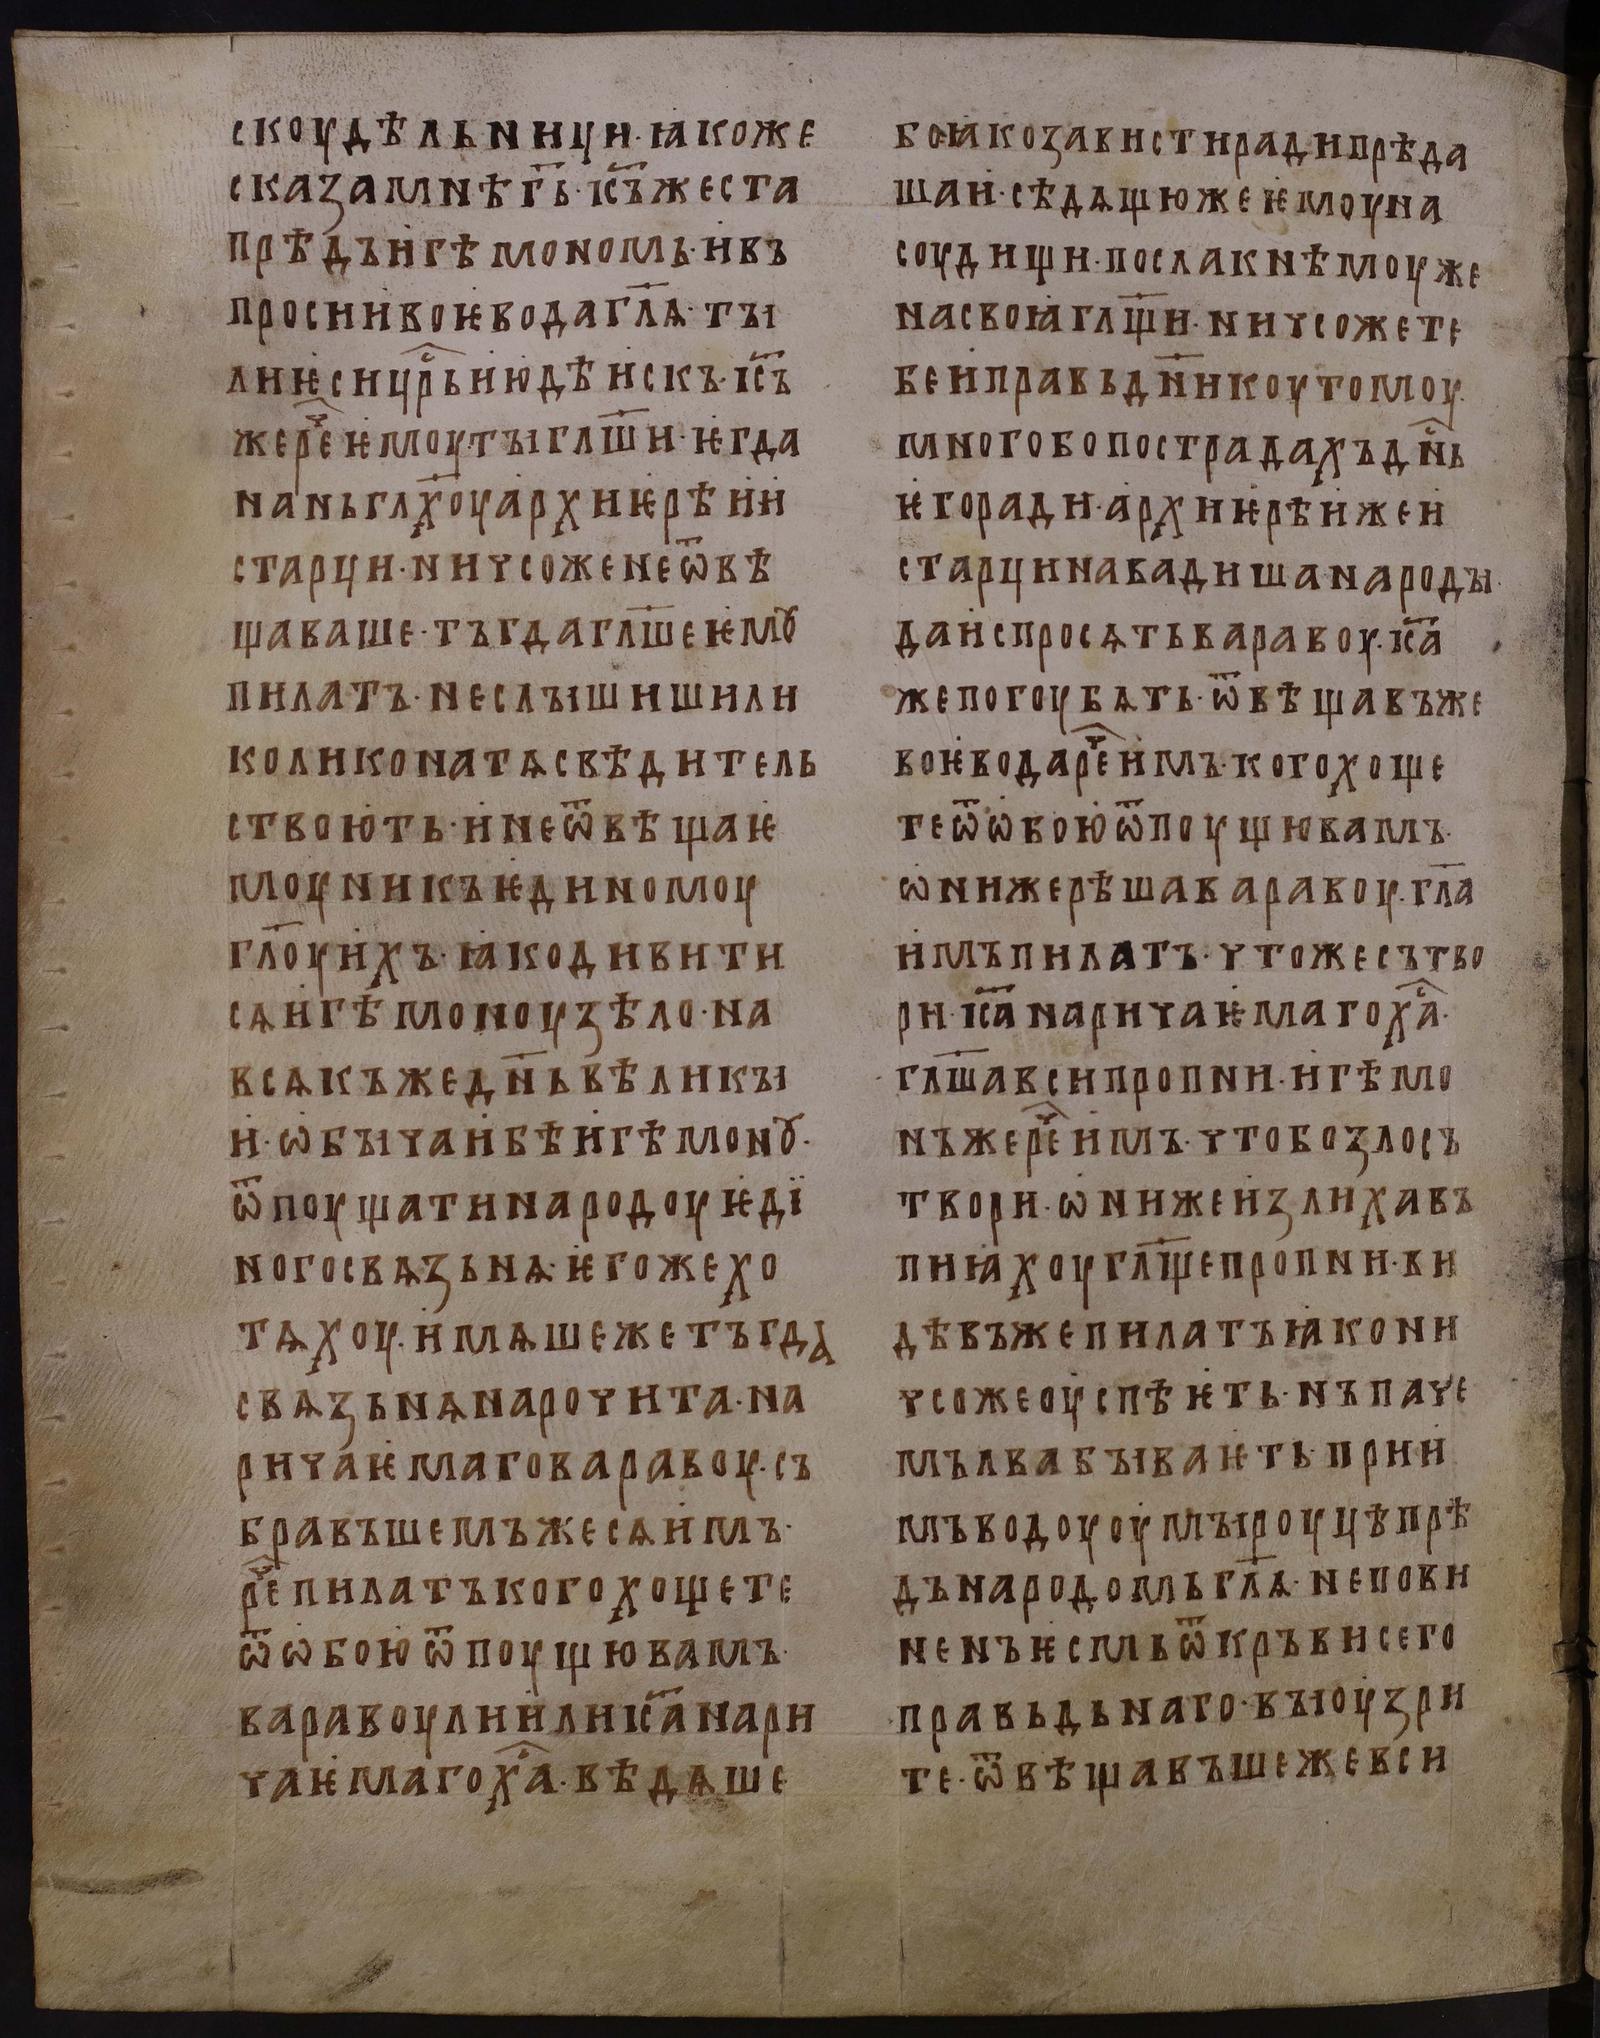 скоудѣльници·ꙗкоже
сказамнѣг҃ь·іс҃ъжеста
прѣдъигѣмономь·ивъ
просиивоѥводагл҃ѧ·ты
лиѥсицр҃ьиюдѣискъ·іс҃ъ
жереч҃еѥмоу·тыгл҃ши·ѥгда
наньгл҃хоуархиѥрѣии
старци·ничсоженеѿвѣ
щаваше·тъгдагл҃шеѥмꙋ
пилатъ·неслышишили
коликонатѧсвѣдитель
ствоють·инеѿвѣщаѥ
моуникъѥдиномоу
гл҃оуихъ·ꙗкодивити
сѧигѣмоноузѣло·на
всѧкъжедн҃ьвѣликы
и·ѡбычаибѣигѣмонꙋ·
ѿпоущатинародоуѥдї
ногосвѧзьнѧ·ѥгожехо
тѧхоу·имѧшежетъгда
свѧзьнѧнарочита·на
ричаѥмаговаравоу·съ
бравъшемъжесѧимъ·
реч҃епилатъкогохощете
ѿѡбоюѿпоущювамъ·
варавоулиилиіс҃анари
чаѥмагох҃са·вѣдѧше
боꙗкозавистирадипрѣда
шаи·сѣдѧщюжеѥмоуна
соудищи·послакнѣмоуже
насвоꙗгл҃щи·ничсожете
беиправьдн҃икоутомоу·
многобопострадахъдн҃сь
ѥгоради·архиѥрѣижеи
старцинавадишанароды·
даиспросѧтьваравоу·іс҃а
жепогоубѧть·ѿвѣщавъже
воѥводареч҃еимъ·когохоще
теѿѡбоюѿпоущювамъ·
ѡнижерѣшаваравоу·гл҃а
имъпилатъ·чтожесътво
ри·іс҃анаричаѥмагох҃са·
гл҃шавсипропни·игѣмо
нъжереч҃еимъ·чтобозлосъ
твори·ѡнижеизлихавъ
пиꙗхоугл҃щепропни·ви
дѣвъжепилатъꙗкони
чсожеоуспѣѥть·нъпаче
мълвабываѥть·прии
мъводоуоумыроуцѣпрѣ
дънародомьгл҃ѧ·непови
ненъѥсмьѿкръвисего
правьдьнаго·выоузри
те·ѿвѣщавъшежевси